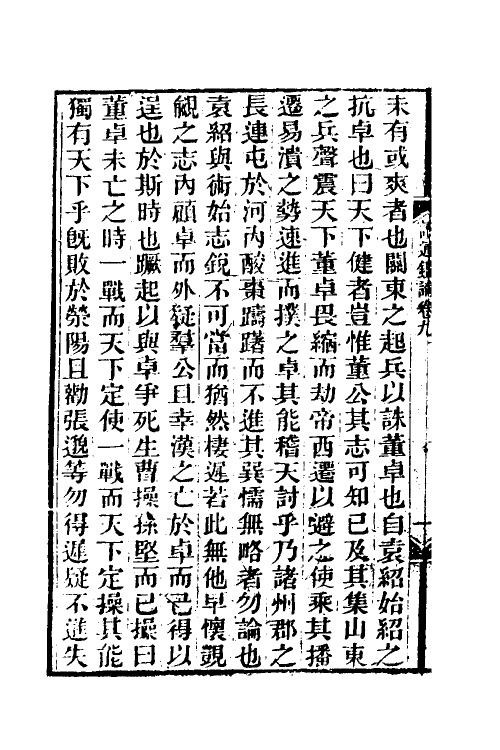 未有或爽者也關東之起兵以誅董卓也自袁紹始紹之
抗卓也曰天下健者豈惟董公其志可知已及其集山東
之兵聲震天下董卓畏縮而劫帝西遷以避之使乘其播
遷易潰之勢速進而撲之卓其能稽天討乎乃諸州郡之
長連屯於河內酸棗躊躇而不進其巽懦無略者勿論也
袁紹與術始志銳不可當而猶然棲遲若此無他早懷覬
覦之志內顧卓而外疑羣公且幸漢之亡於卓而已得以
逞也於斯時也蹶起以與卓爭死生曹操孫堅而已操曰
董卓未亡之時一戰而天下定使一戰而天下定操其能
獨有天下乎旣敗於滎陽且勸張邈等勿得遲疑不進失
通鑑論卷九